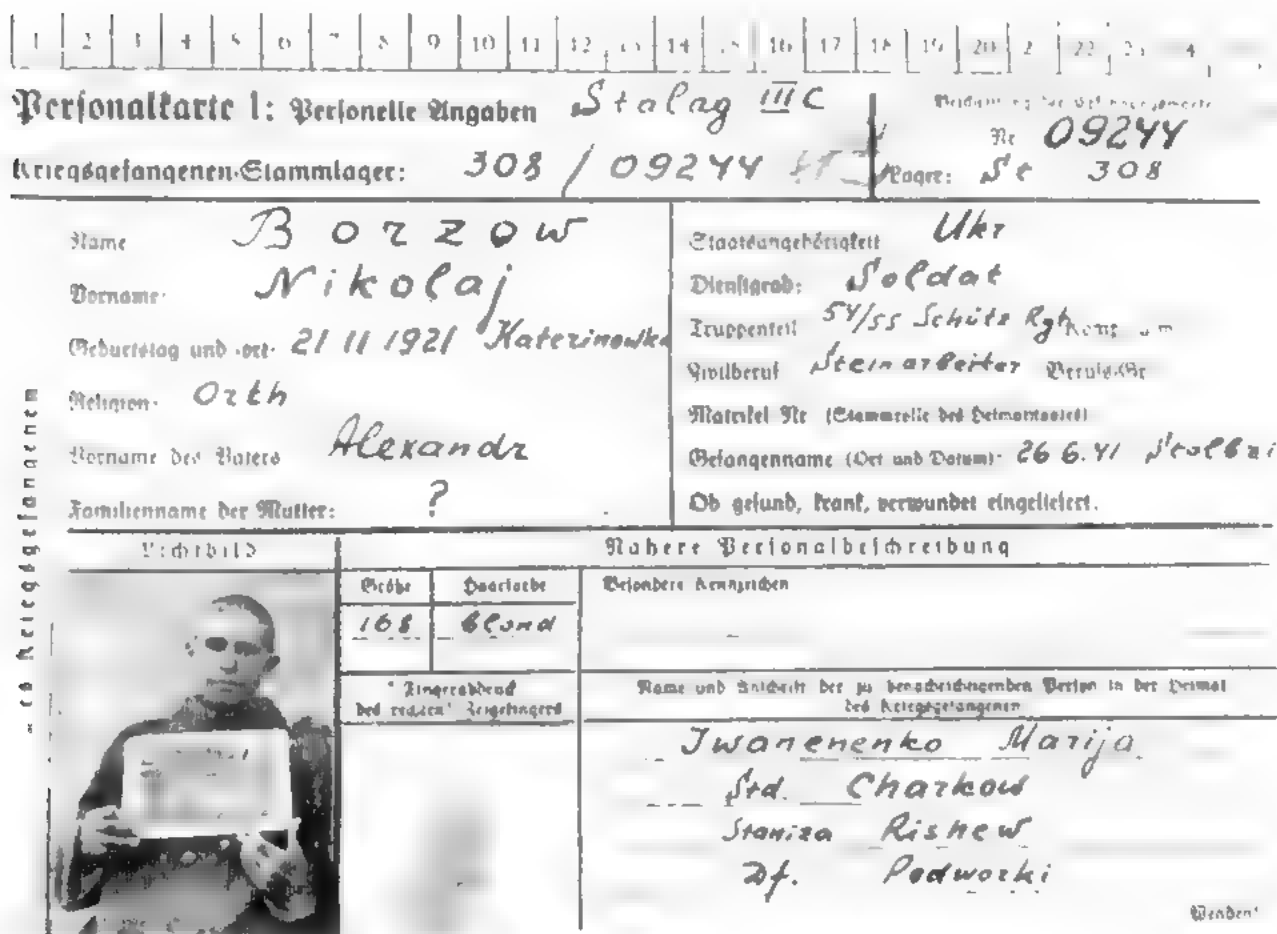 1 2 3 4 5 6 7 8 9 10 11 12 13 14 15 16 17 18 19 20 2 22 23 4
Personalkarte 1: Personelle Angaben Stalag III C
Kriegsgefangenen-Stammlager: 308 / 09244
Nr 09244
Lager: St 308
Name Borzow
Vorname: Nikolaj
Geburtstag und -ort: 21 11 1921 Katerinowka
Religion: Orth
Vorname des Vaters Alexandr
Familienname der Mutter: ?
Staatsangehörigkeit Ukr
Dienstgrad: Soldat
Truppenteil 54/55 Schütz Rgt Komp.
Zivilberuf Steinarbeiter Berufs-Gr
Matrikel Nr (Stammrolle des Heimatstaates)
Gefangennahme (Ort und Datum): 26 6.41 Stolbzi
Ob gesund, krank, verwundet eingeliefert.
des Kriegsgefangenen
Lichtbild
Nähere Personalbeschreibung
Größe Haarfarbe Besondere Kennzeichen
168 blond
Fingerabdruck
des rechten Zeigefingers
Name und Anschrift der zu benachrichtigenden Person in der Heimat
des Kriegsgefangenen
Iwanenenko Marija
Std. Charkow
Staniza Rishew
Df. Podworki
Wenden!